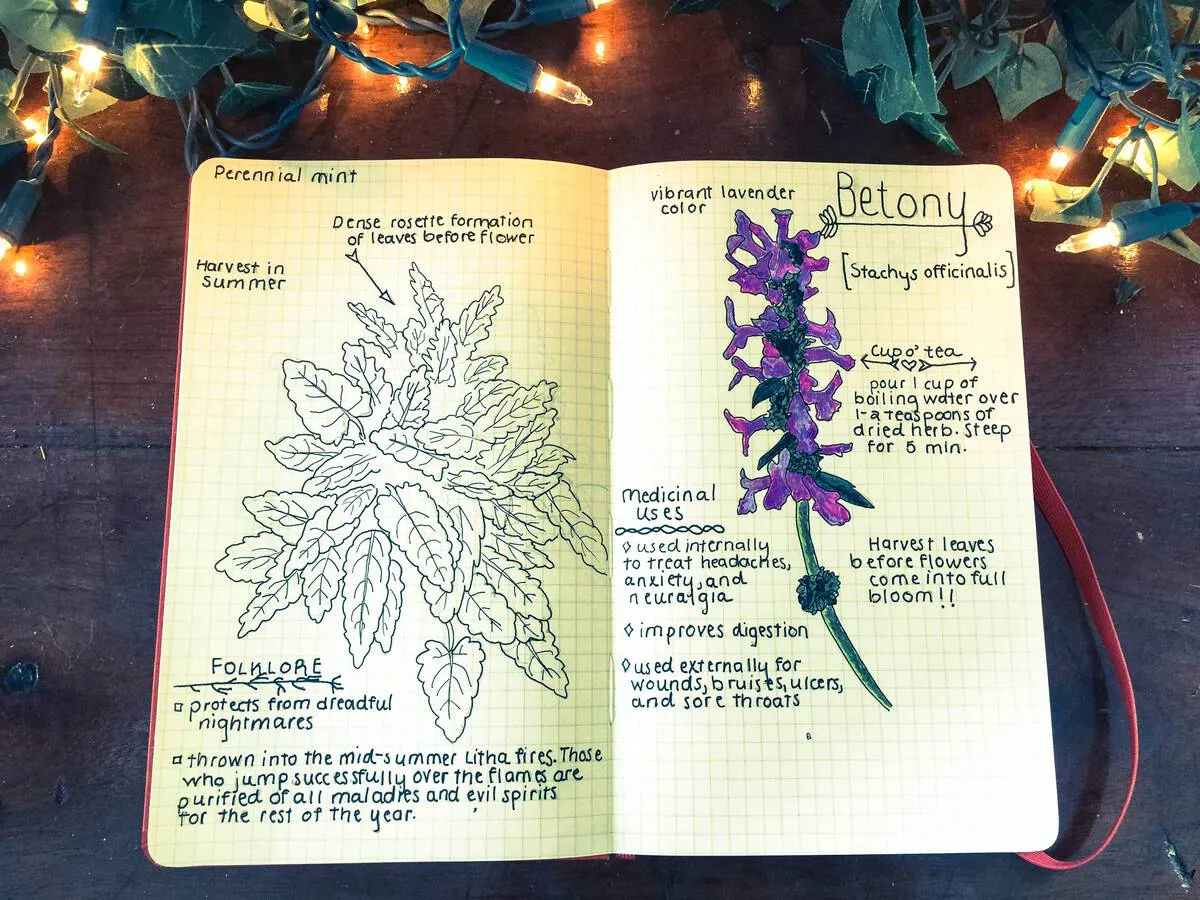 Perennial mint
Dense rosette formation
of leaves before flower
Harvest in
summer
FOLKLORE
protects from dreadful
nightmares
thrown into the mid-summer Litha fires. Those
who jump successfully over the flames are
purified of all maladies and evil spirits
for the rest of the year.
vibrant lavender
color
Betony
[Stachys officinalis]
Cup o' tea
pour 1 cup of
boiling water over
1-2 teaspoons of
dried herb. Steep
for 5 min.
Medicinal
uses
◊ used internally
to treat headaches,
anxiety, and
neuralgia
◊ improves digestion
◊ used externally for
wounds, bruises, ulcers,
and sore throats
Harvest leaves
before flowers
come into full
bloom!!